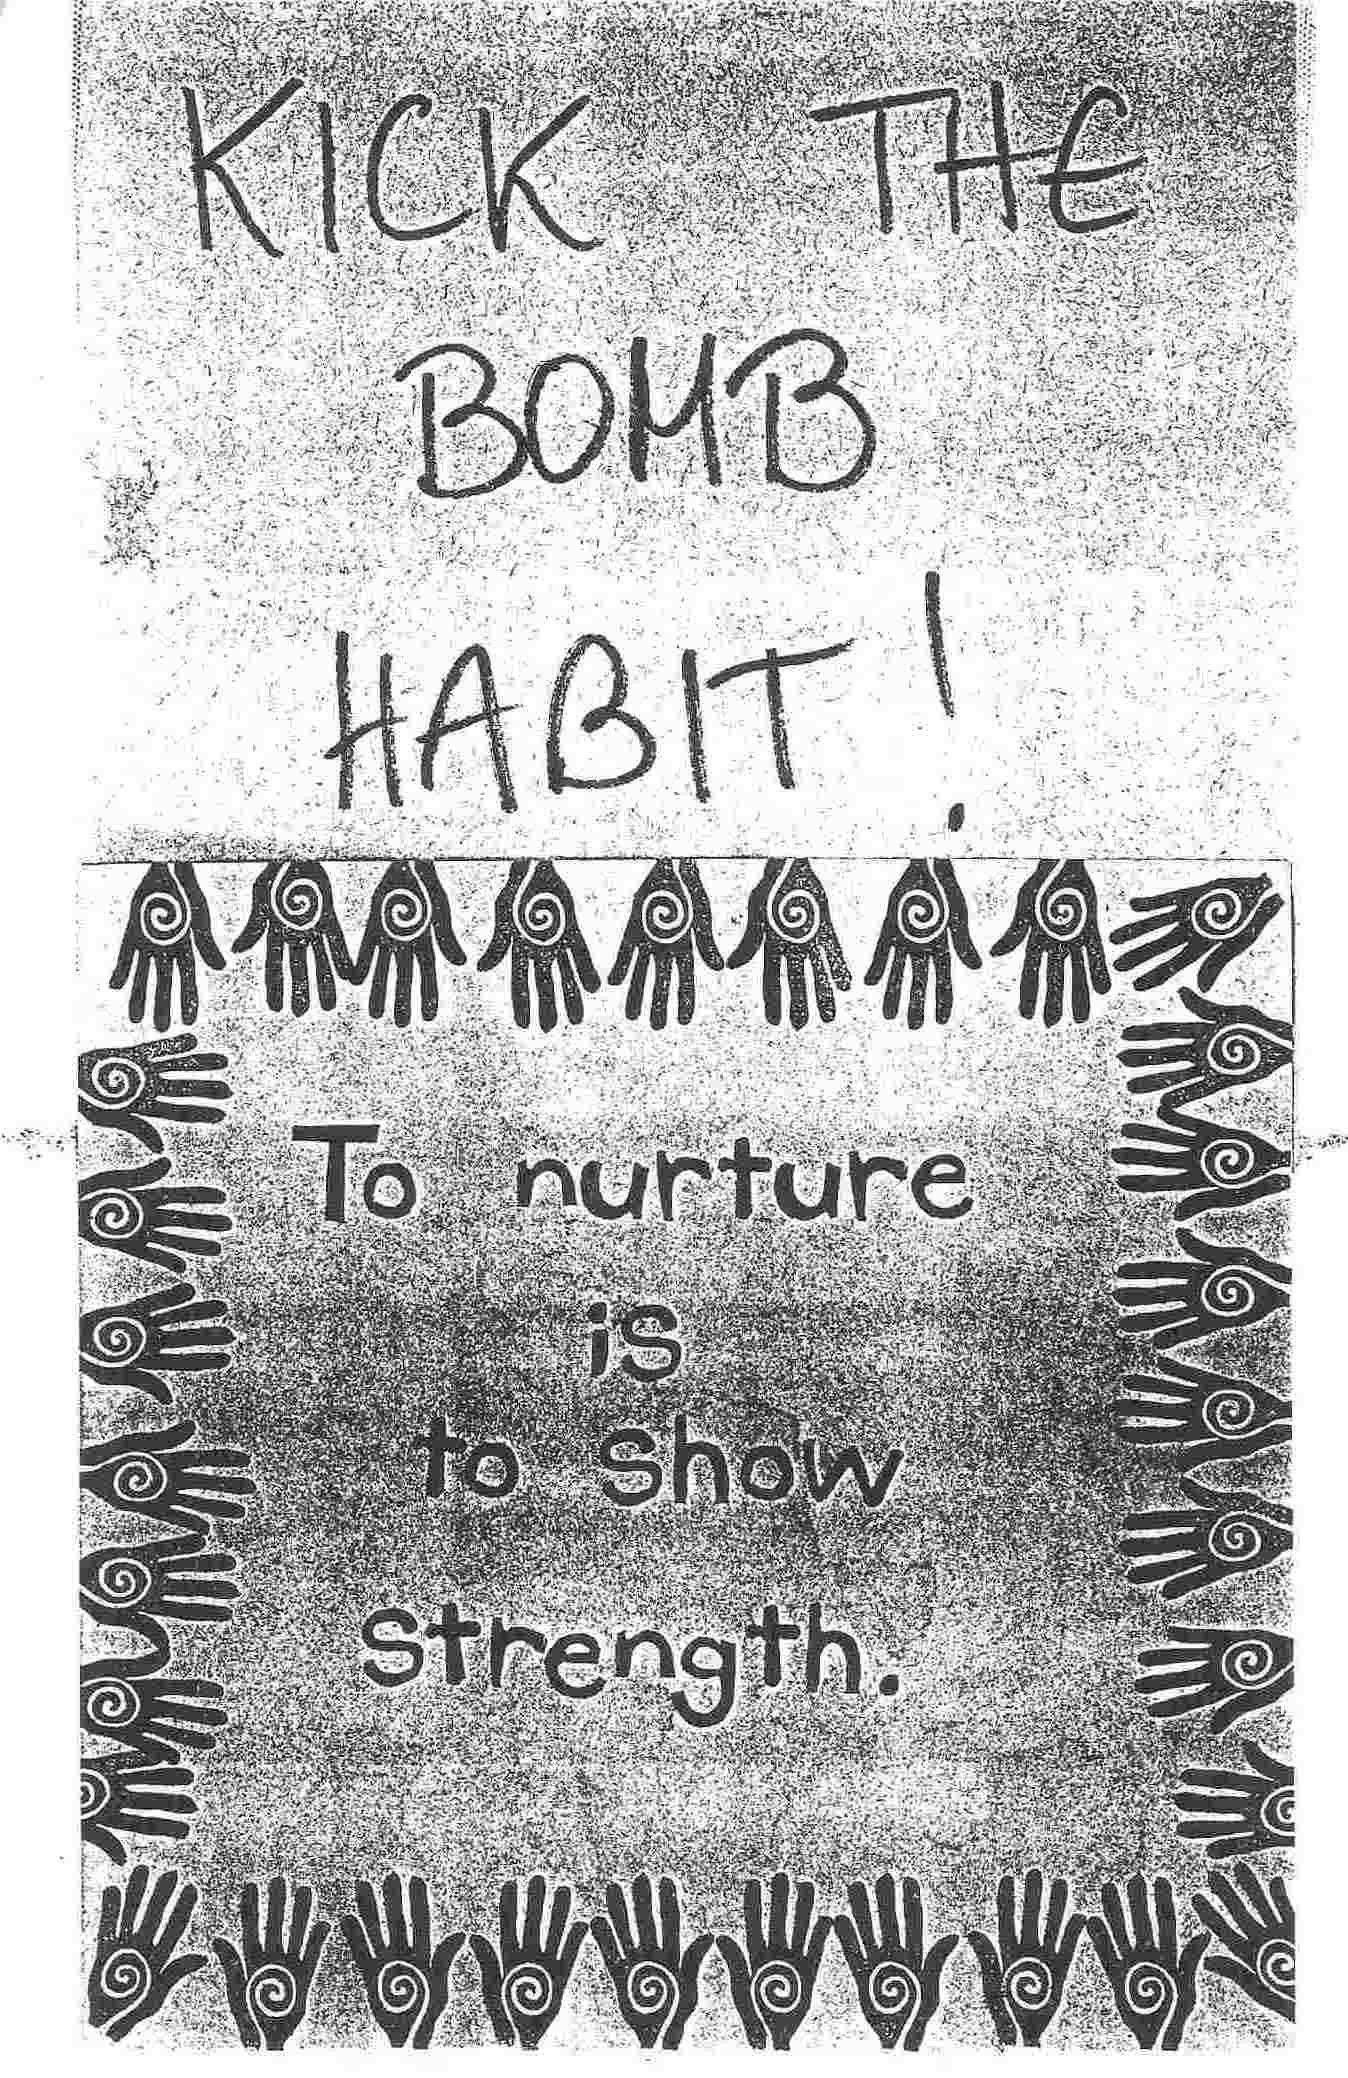 KICK THE
BOMB
HABIT!
To nurture
is
to show
strength.